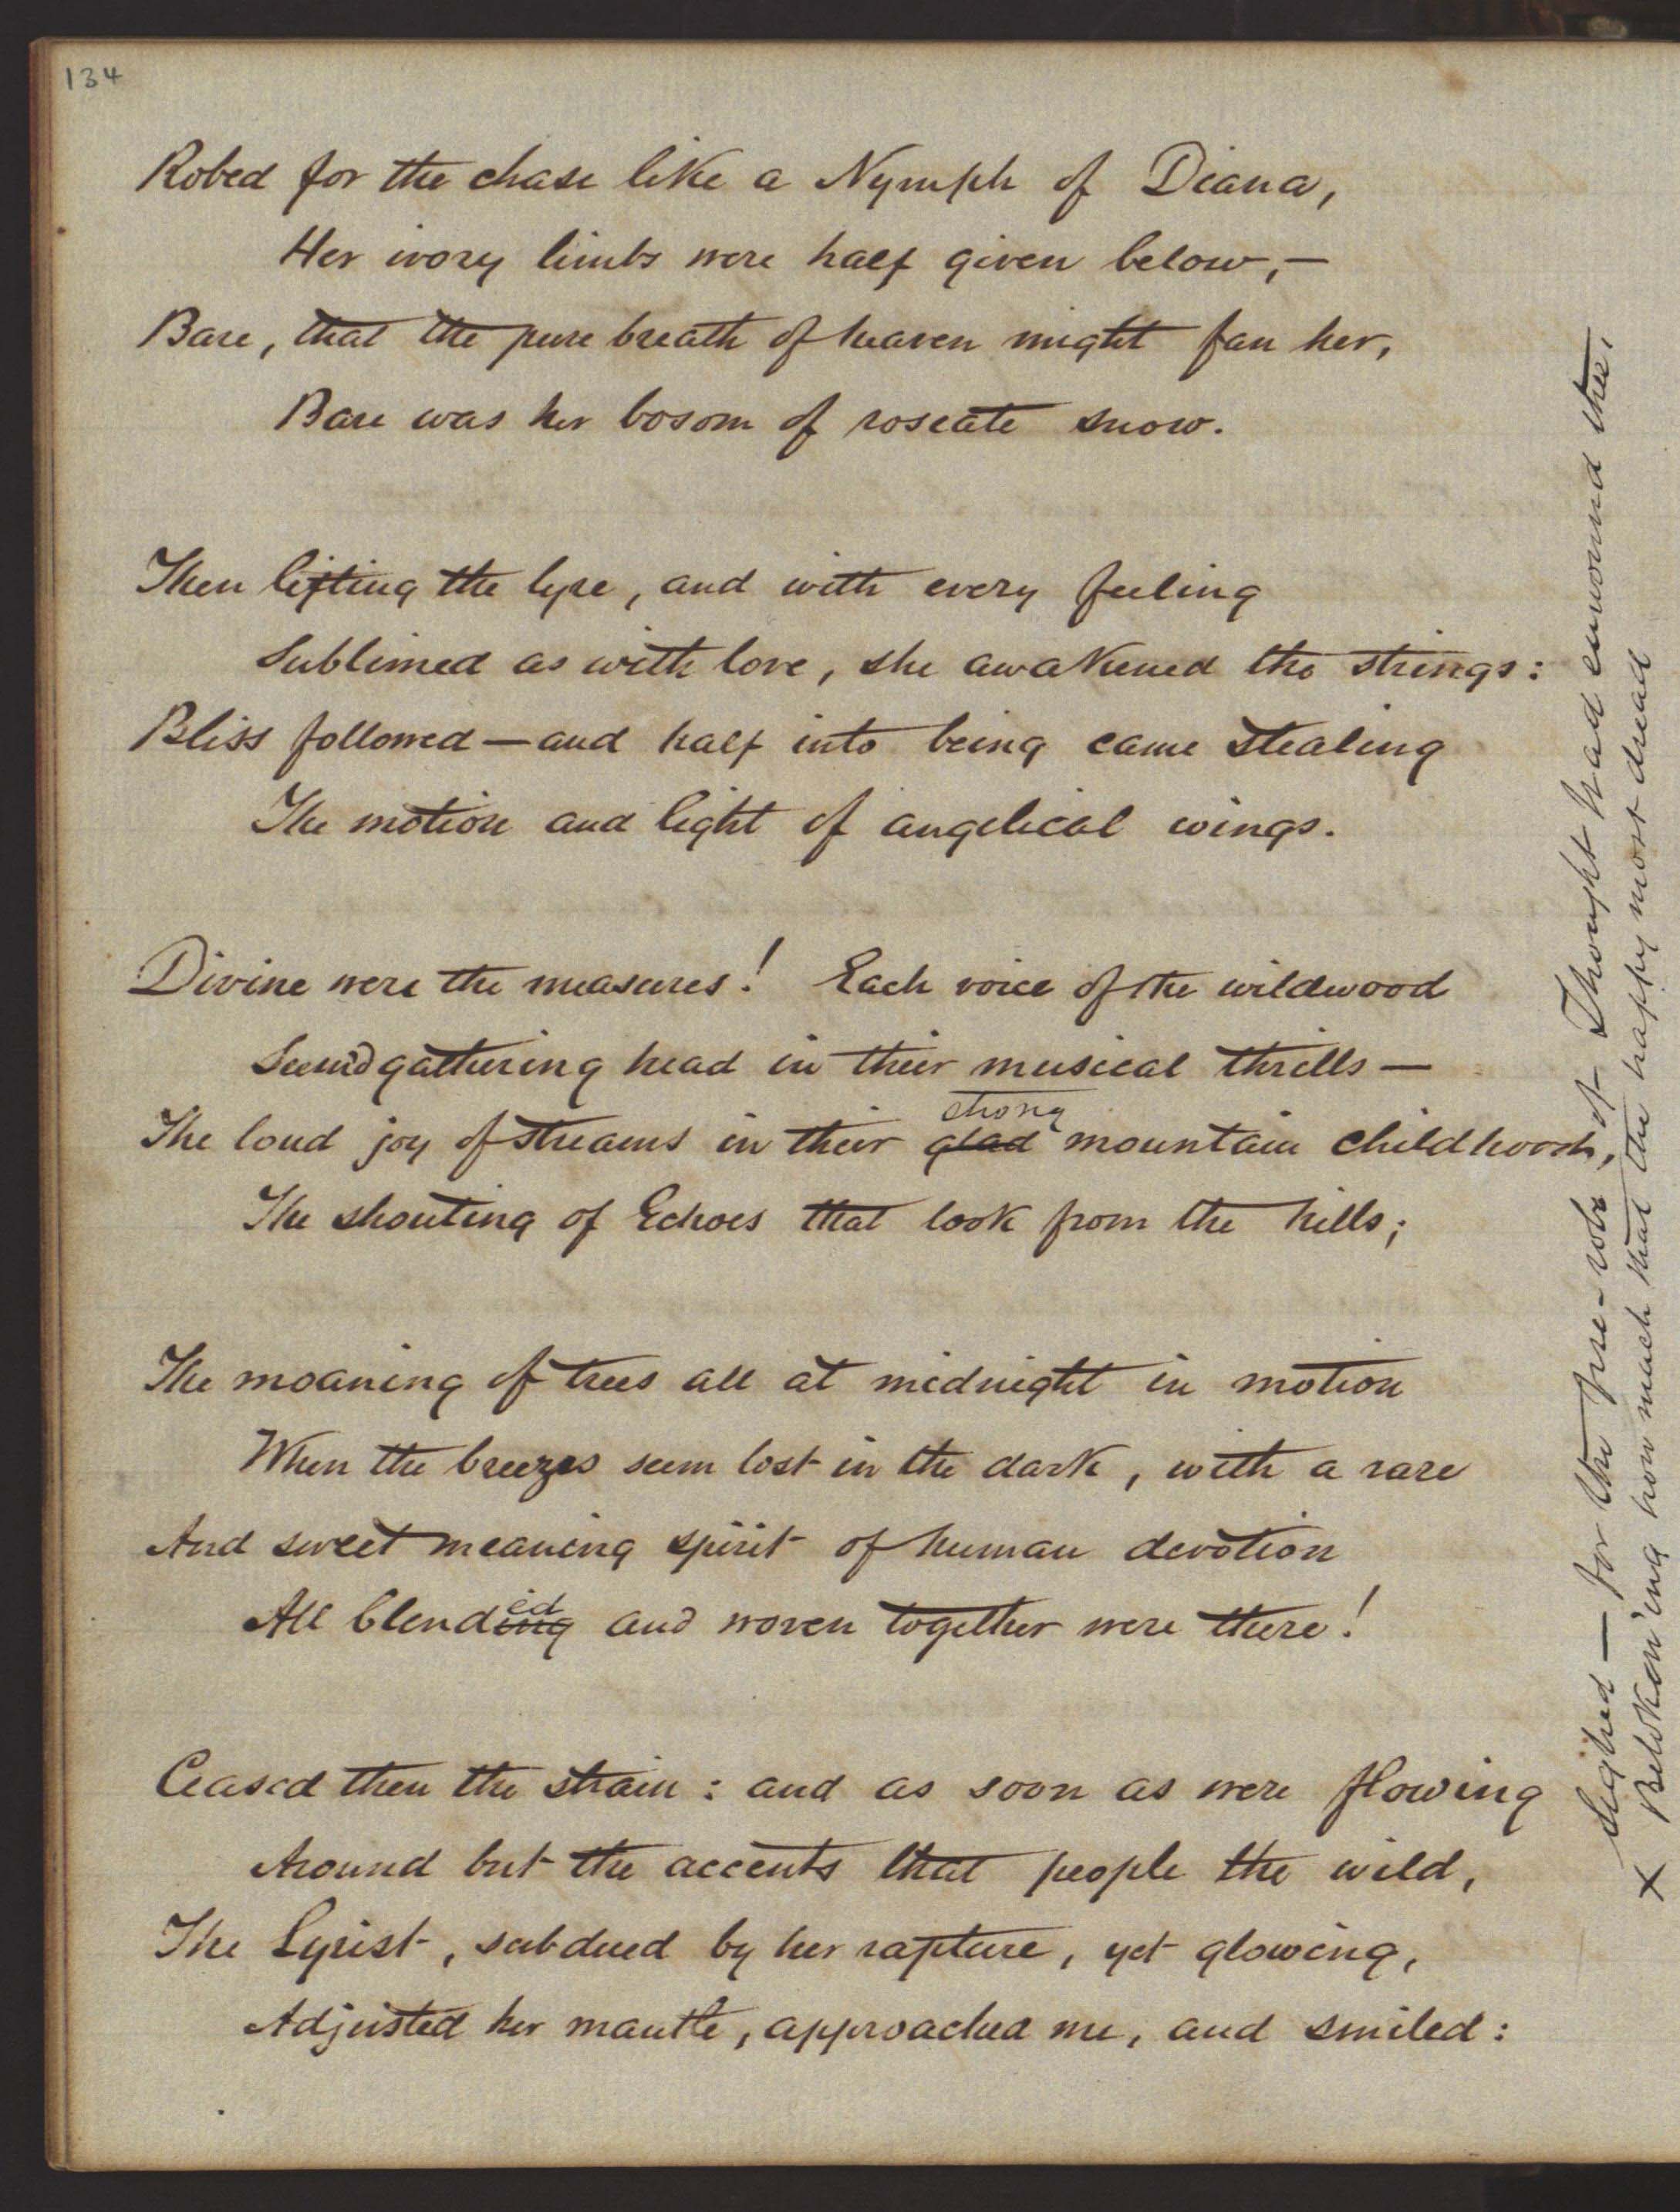 134
Robed for the chase like a Nymph of Diana,
Her ivory limbs were half given below,—
Bare, that the pure breath of heaven might fan her,
Bare was her bosom of roseate snow.
Then lifting the lyre, and with every feeling
Sublimed as with love, she awakened the strings:
Bliss followed—and half into being came stealing
The motion and light of angelical wings.
Divine were the measures! Each voice of the wildwood
Seem'd gathering head in their musical thrills—
strong
The loud joy of streams in their glad mountain childhoods,
The shouting of Echoes that look from the hills;
The moaning of trees all at midnight in motion
When the breezes seem lost in the dark, with a rare
And sweet meaning spirit of human devotion
ed
All blending and woven together were there!
Ceased then the strain: and as soon as were flowing
Around but the accents that people the wild,
The Lyrist, subdued by her rapture, yet glowing,
Adjusted her mantle, approached me, and smiled:
Sighed — for the fire-robe of Thought had enwound thee,
x Betoken'ing how much that the happy most dread